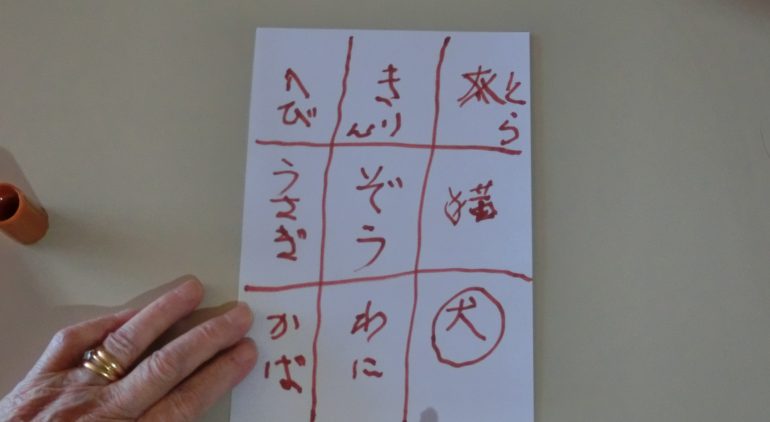 とら
猫
犬
きりん
ぞう
わに
へび
うさぎ
かば